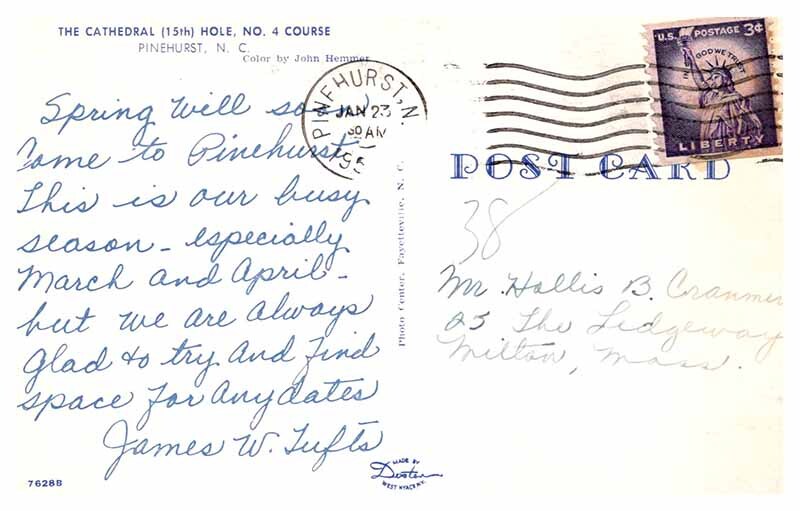 THE CATHEDRAL (15th) HOLE, NO. 4 COURSE
PINEHURST, N. C.
Color by John Hemmer
Spring will soon
Come to Pinehurst -
This is our busy
season - especially
March and April -
but we are always
glad to try and find
space for any dates
James W. Tufts
7628B
Photo Center, Fayetteville, N. C.
MADE BY
Dexter
WEST NYACK, N.Y.
PINEHURST, N.
JAN 23
30 AM
195
U.S. POSTAGE 3¢
IN GOD WE TRUST
LIBERTY
POST CARD
38
Mr. Hollis B. Cranmer
25 The Ledgeway
Milton, Mass.